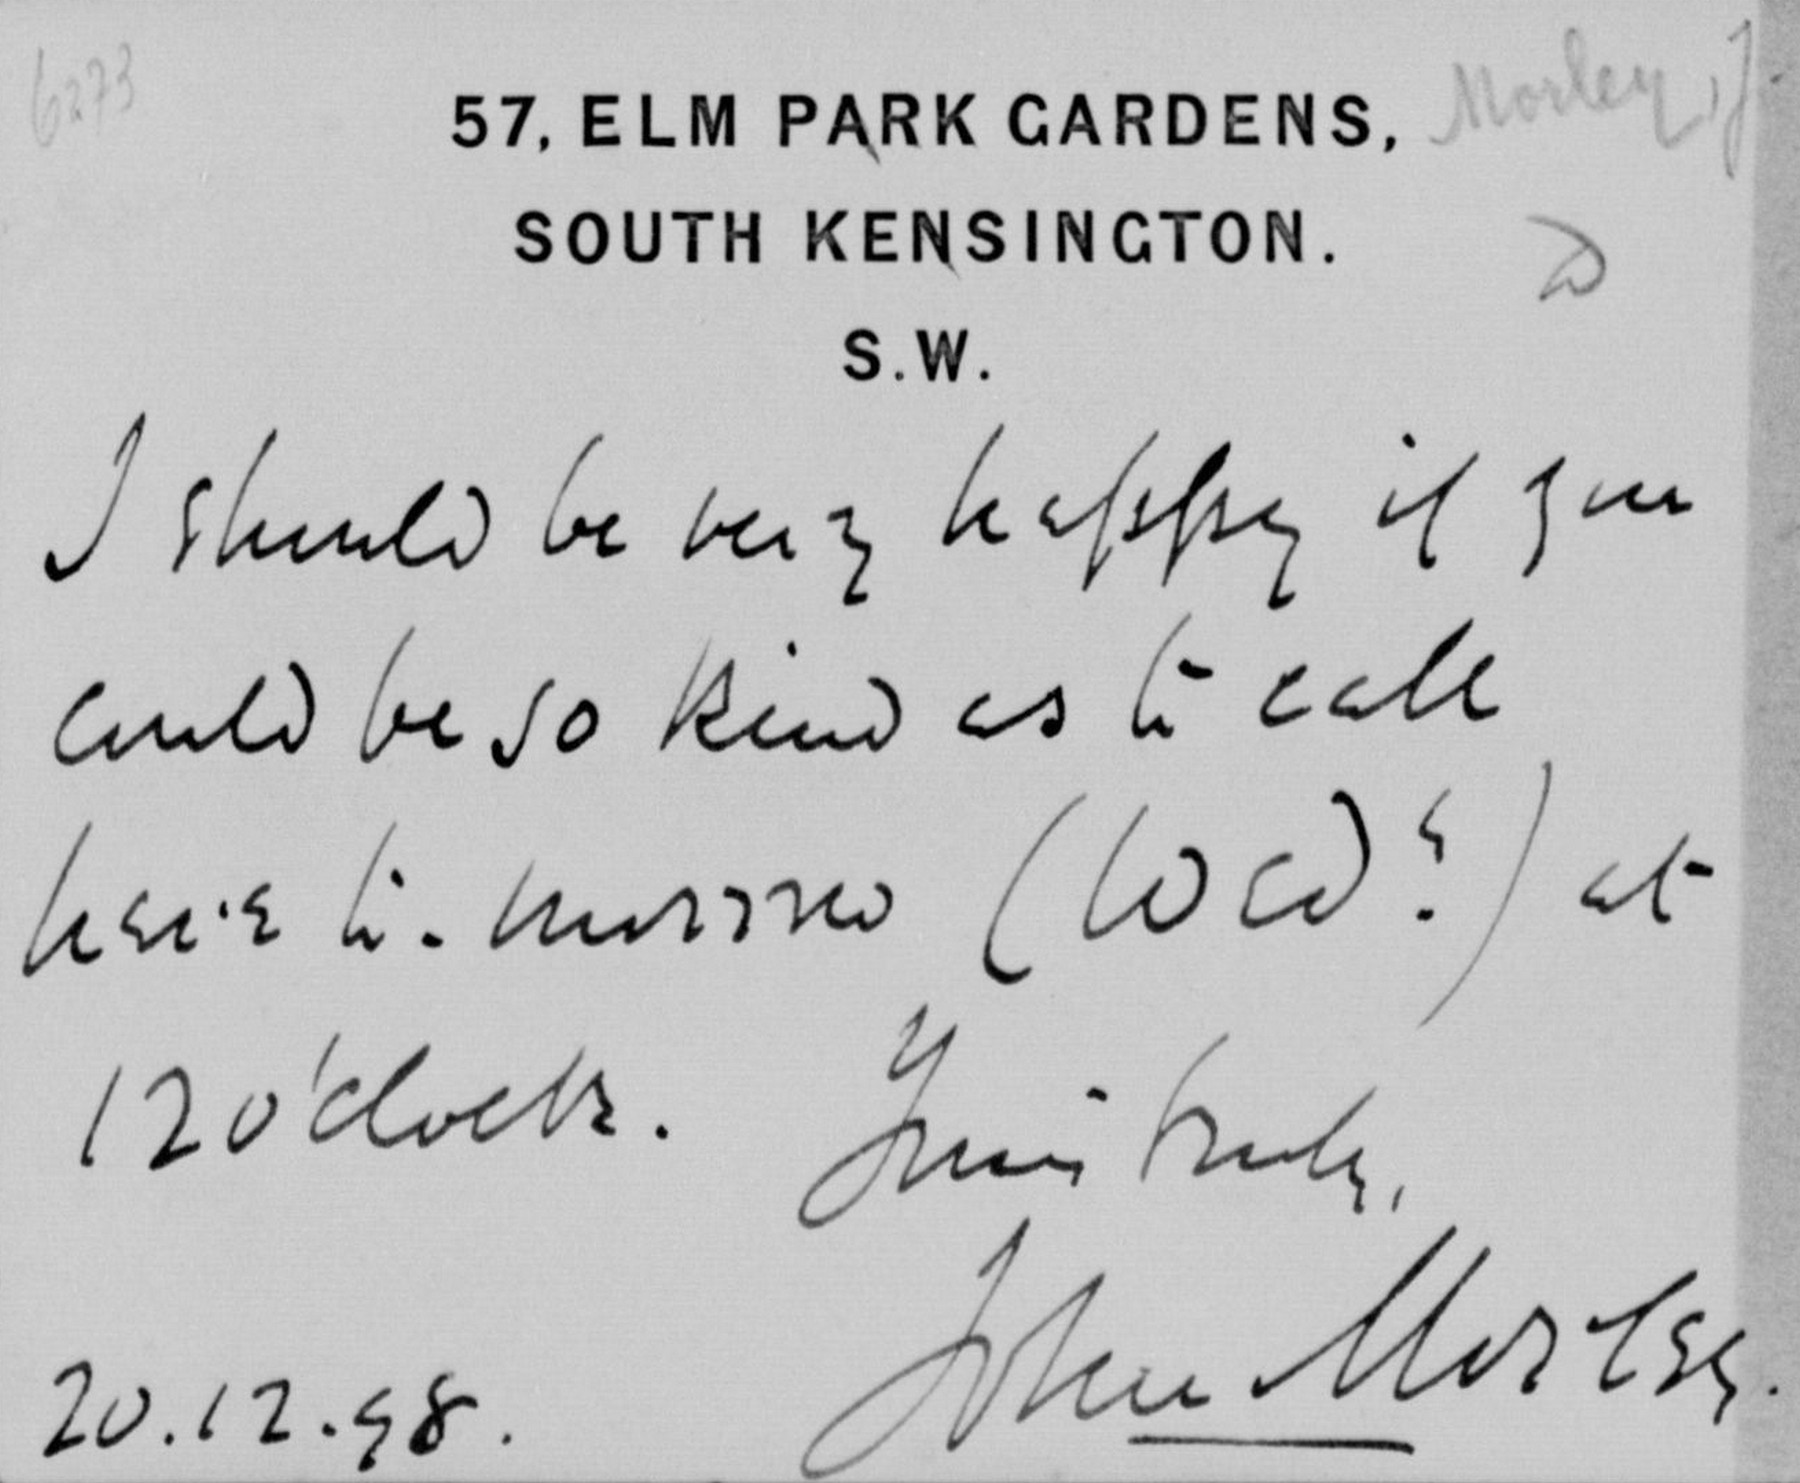 6273
Morley, J
57, ELM PARK GARDENS,
SOUTH KENSINGTON.
S.W.
I should be very happy if you
could be so kind as to call
here to-morrow (Wed.y) at
12 o'clock. Yours truly,
John Morley.
20.12.98.